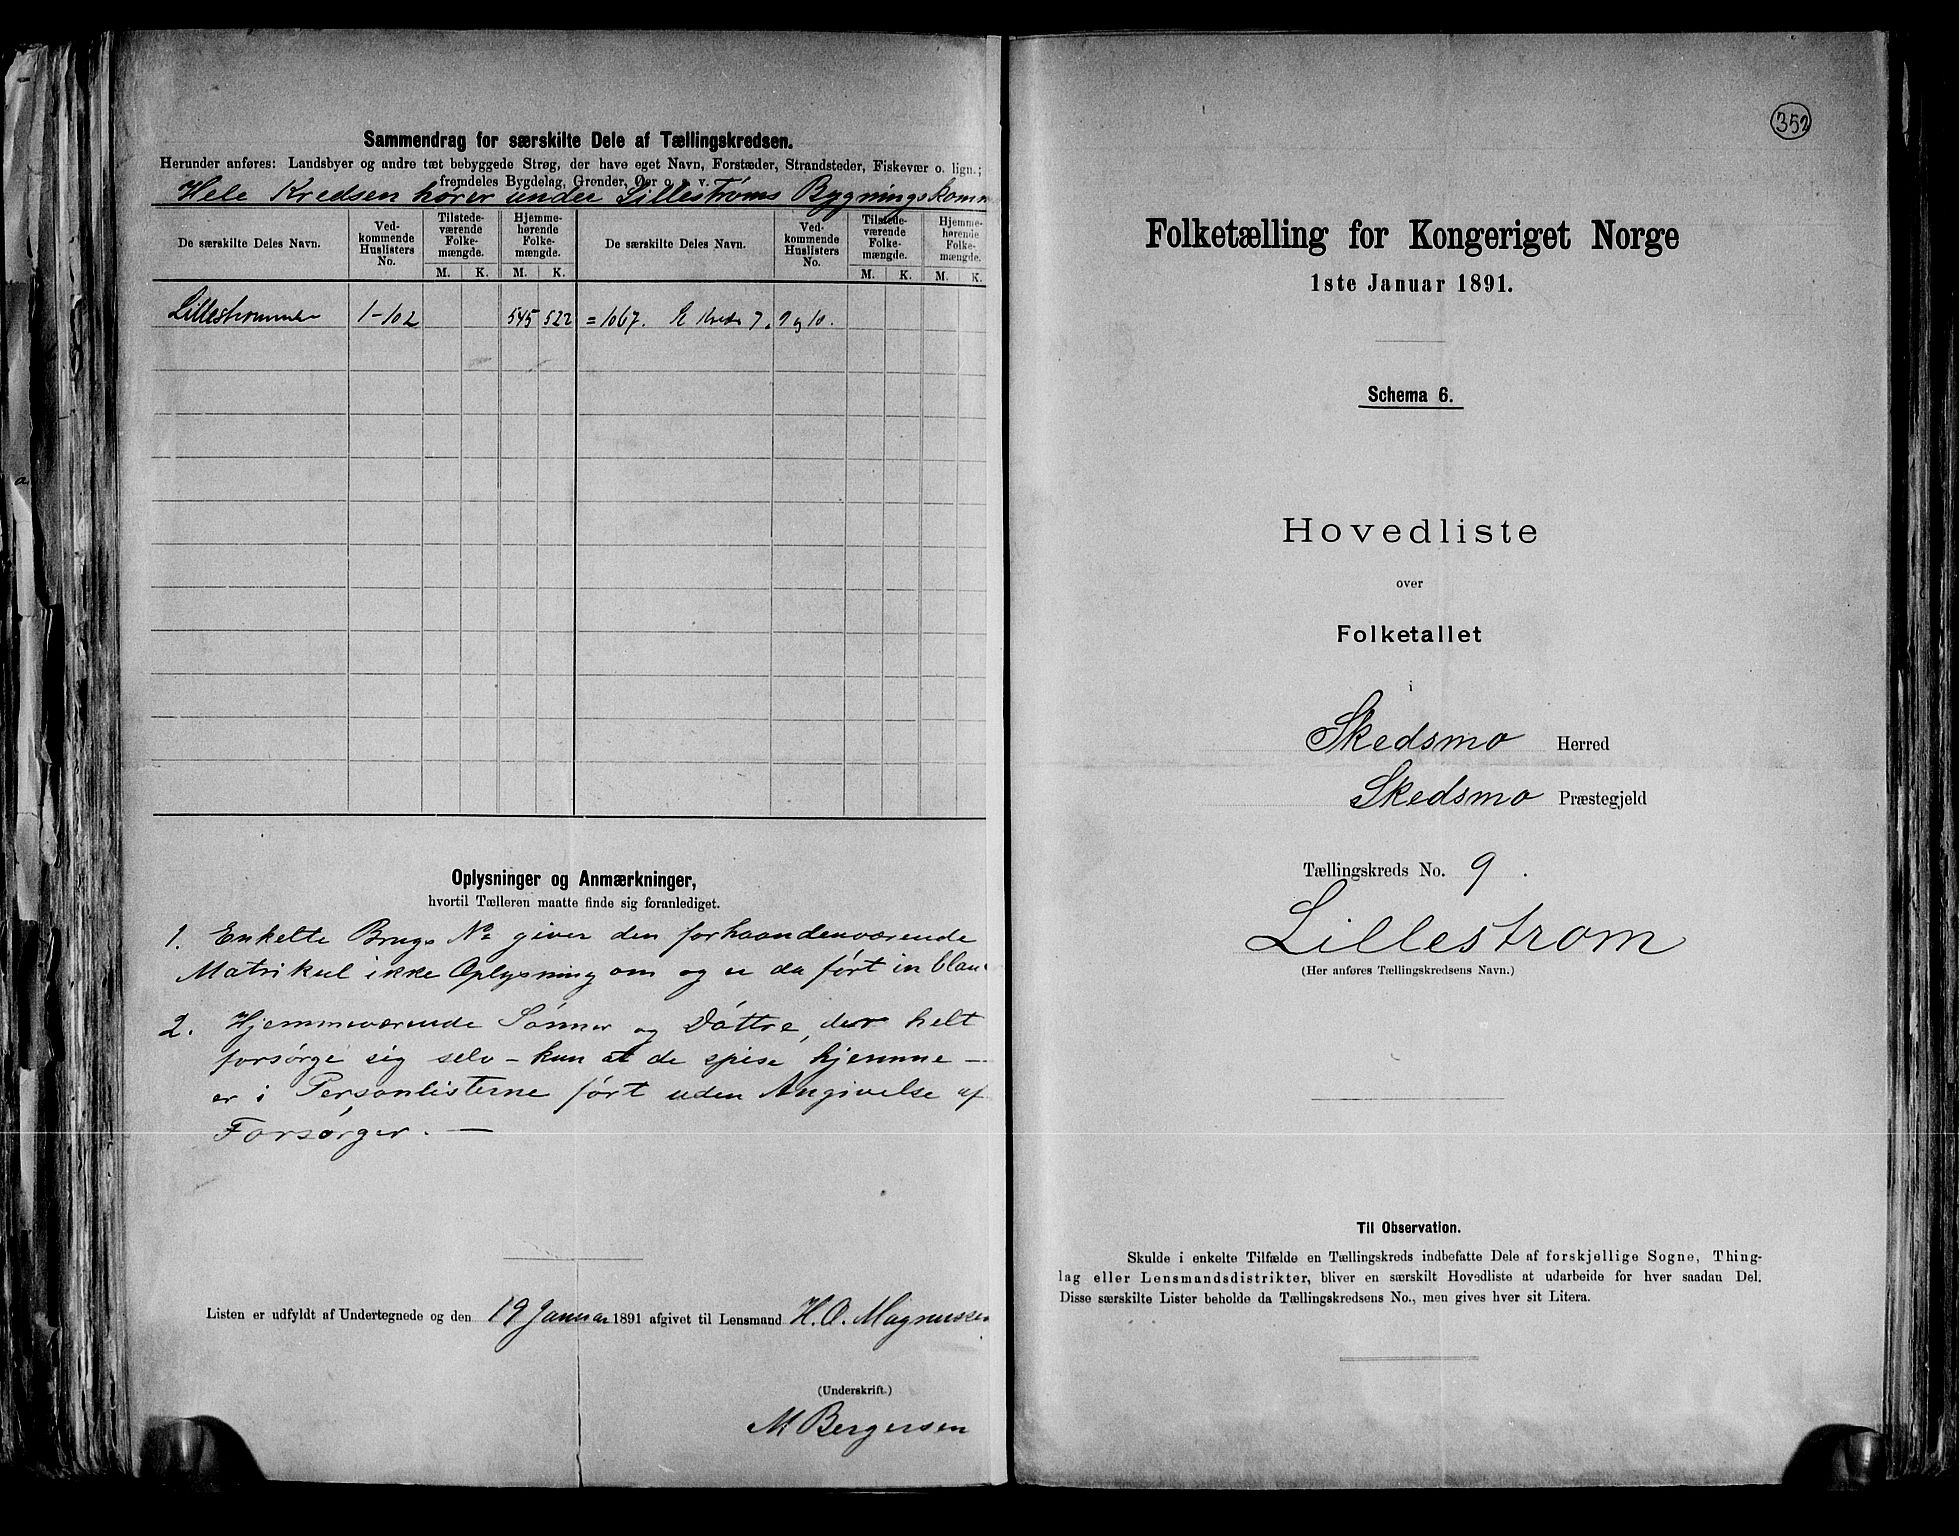 Sammendrag for særskilte Dele af Tællingskredsen.
Herunder anføres: Landsbyer og andre tæt bebyggede Strøg, der have eget Navn, Forstæder, Strandsteder, Fiskevær o. lign.;
fremdeles Bygdelag, Grender, Øer o. s. v.
Hele Kredsen hører under Lillestrøms Bygningskomm
De særskilte Deles Navn.
Ved-
kommende
Huslisters
No.
Tilstede-
værende
Folke-
mængde.
Hjemme-
hørende
Folke-
mængde.
De særskilte Deles Navn.
Ved-
kommende
Huslisters
No.
Tilstede-
værende
Folke-
mængde.
Hjemme-
hørende
Folke-
mængde.
M. K. M. K. M. K. M. K.
Lillestrømmen 1-102 545 522 = 1067. Kreds 7. 9 og 10.
Oplysninger og Anmærkninger,
hvortil Tælleren maatte finde sig foranlediget.
1. Enkelte Brugs No giver den forhaandenværende
Matrikul ikke Oplysning om og er da ført in blan
2. Hjemmeværende Sønner og Døttre, der helt
forsørge sig selv – kun at de spise hjemme –
er i Personlisterne ført uden Angivelse af
Forsørger. —
Listen er udfyldt af Undertegnede og den 19 Januar 1891 afgivet til Lensmand H. O. Magnussen
(Underskrift.)
M Bergersen
352
Folketælling for Kongeriget Norge
1ste Januar 1891.
Schema 6.
Hovedliste
over
Folketallet
i
Skedsmo Herred
Skedsmo Præstegjeld
Tællingskreds No. 9.
Lillestrøm
(Her anføres Tællingskredsens Navn.)
Til Observation.
Skulde i enkelte Tilfælde en Tællingskreds indbefatte Dele af forskjellige Sogne, Thing-
lag eller Lensmandsdistrikter, bliver en særskilt Hovedliste at udarbeide for hver saadan Del.
Disse særskilte Lister beholde da Tællingskredsens No., men gives hver sit Litera.